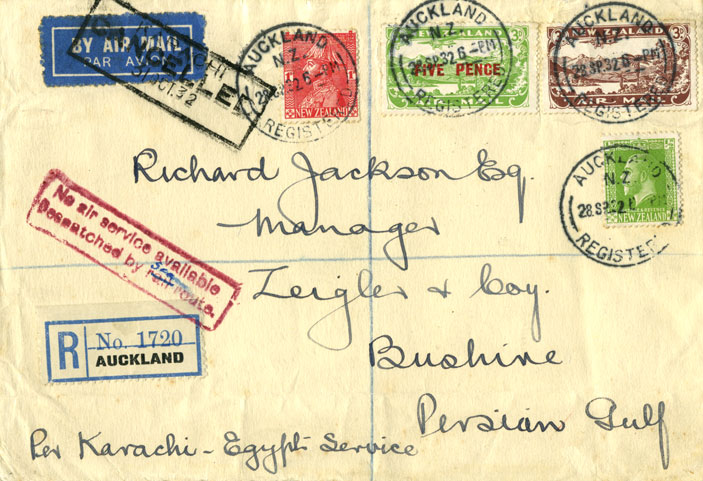 BY AIR MAIL
PAR AVION
31 OCT. 32
AUCKLAND
N.Z.
28 SP 32 6 - PM
REGISTERED
1D
NEW ZEALAND
AUCKLAND
N.Z.
28 SP 32 6 - PM
REGISTERED
3D
FIVE PENCE
AUCKLAND
N.Z.
28 SP 32 6 - PM
REGISTERED
3D
AIR MAIL
AUCKLAND
N.Z.
28 SP 32 6 - PM
REGISTERED
NEW ZEALAND
Richard Jackson Esq.
Manager
Zeigler & Coy.
Bushire
Persian Gulf
No air service available
Despatched by sea route.
R No. 1720
AUCKLAND
Per Karachi - Egypt Service